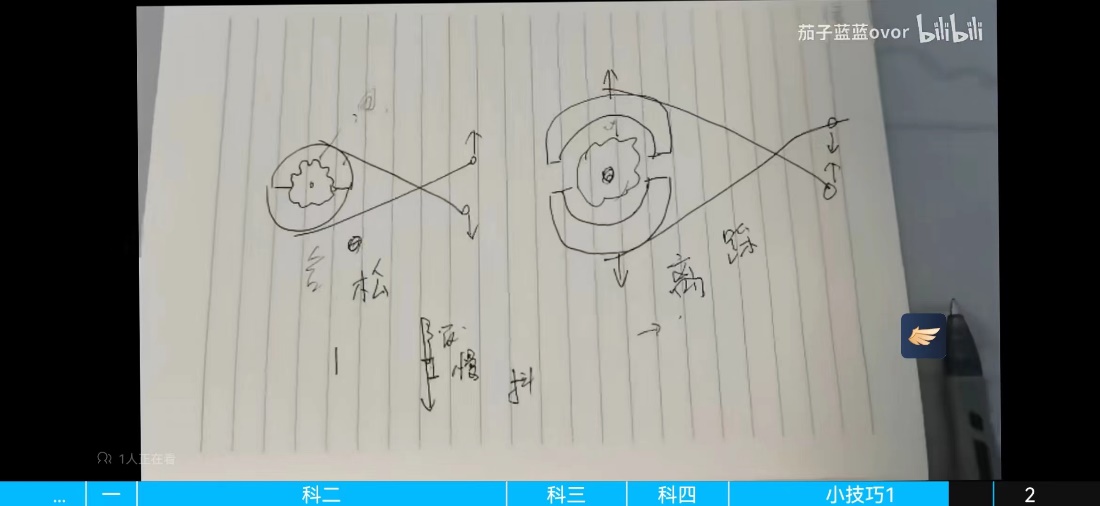 茄子蓝蓝ovor bilibili
合 松
离 踩
慢
抖
1人正在看
... 一 科二 科三 科四 小技巧1 2